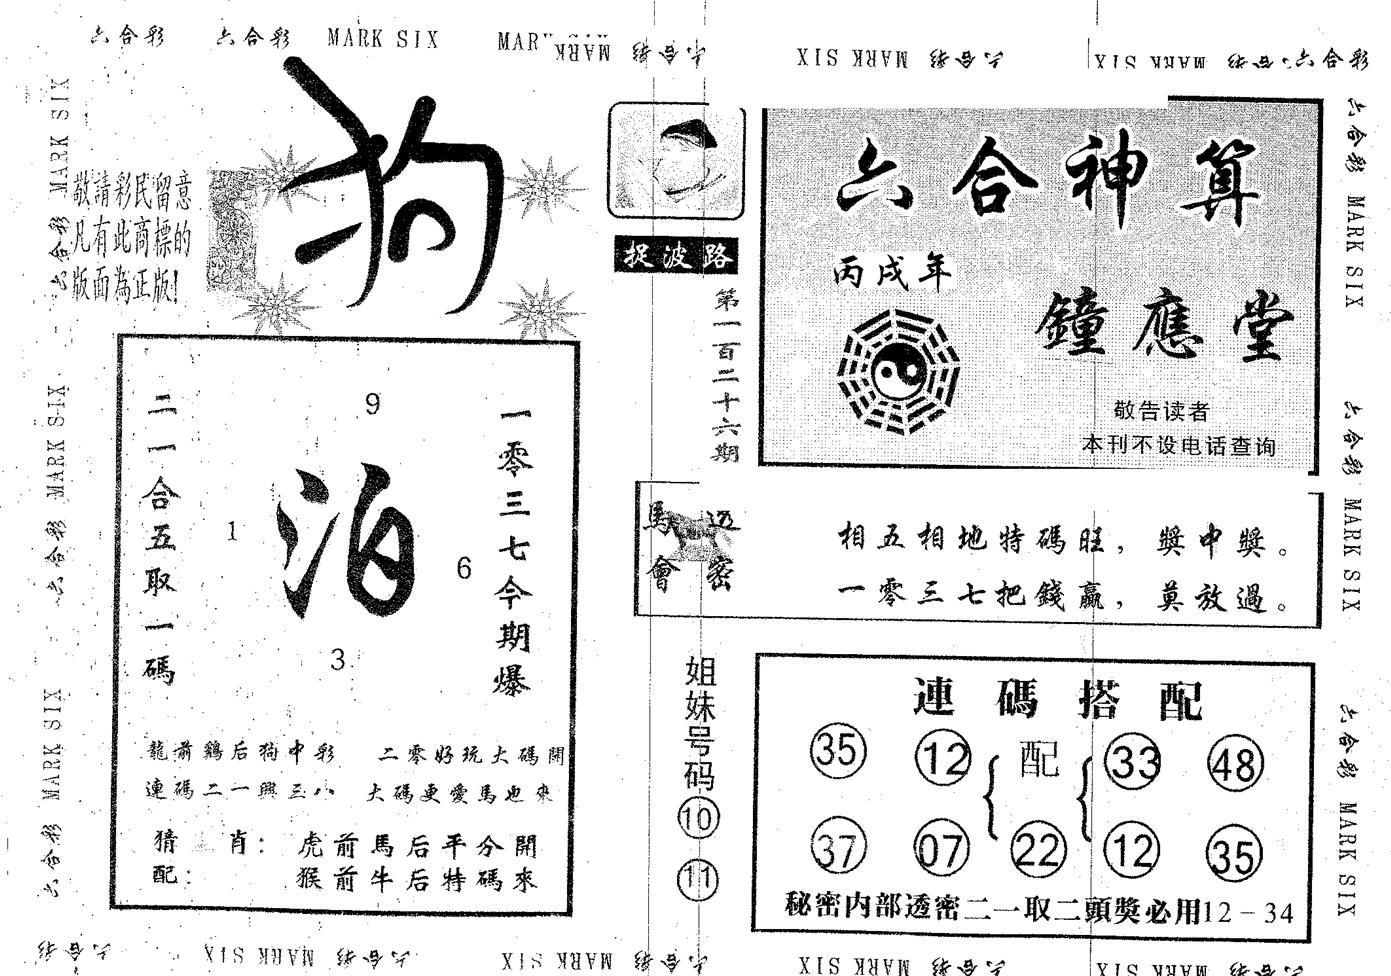 六合彩 六合彩 MARK SIX MARK SIX 六合彩
XIS KRAM 六合彩 XIS KRAM 六合彩 六合彩
狗
敬請彩民留意
凡有此商標的
版面為正版!
捉波路
第一百二十六期
六合神算
丙戌年
鐘應堂
敬告读者
本刊不设电话查询
二一合五取一碼
9
1
泊
6
3
一零三七今期爆
龍前鷄后狗中彩 二零好玩大碼開
連碼二一興三八 大碼更愛馬也來
猜肖: 虎前馬后平分開
配: 猴前牛后特碼來
馬會
透密
相五相地特碼旺,獎中獎。
一零三七把錢贏,莫放過。
姐妹号码
10
11
連碼搭配
35 12 { 配 { 33 48
37 07 22 12 35
秘密内部透密二一取二頭獎必用12-34
六合彩 MARK SIX 六合彩 MARK SIX 六合彩 MARK SIX
六合彩 MARK SIX 六合彩 MARK SIX 六合彩 MARK SIX
六合彩 MARK SIX 六合彩 MARK SIX 六合彩 MARK SIX 六合彩 MARK SIX 六合彩